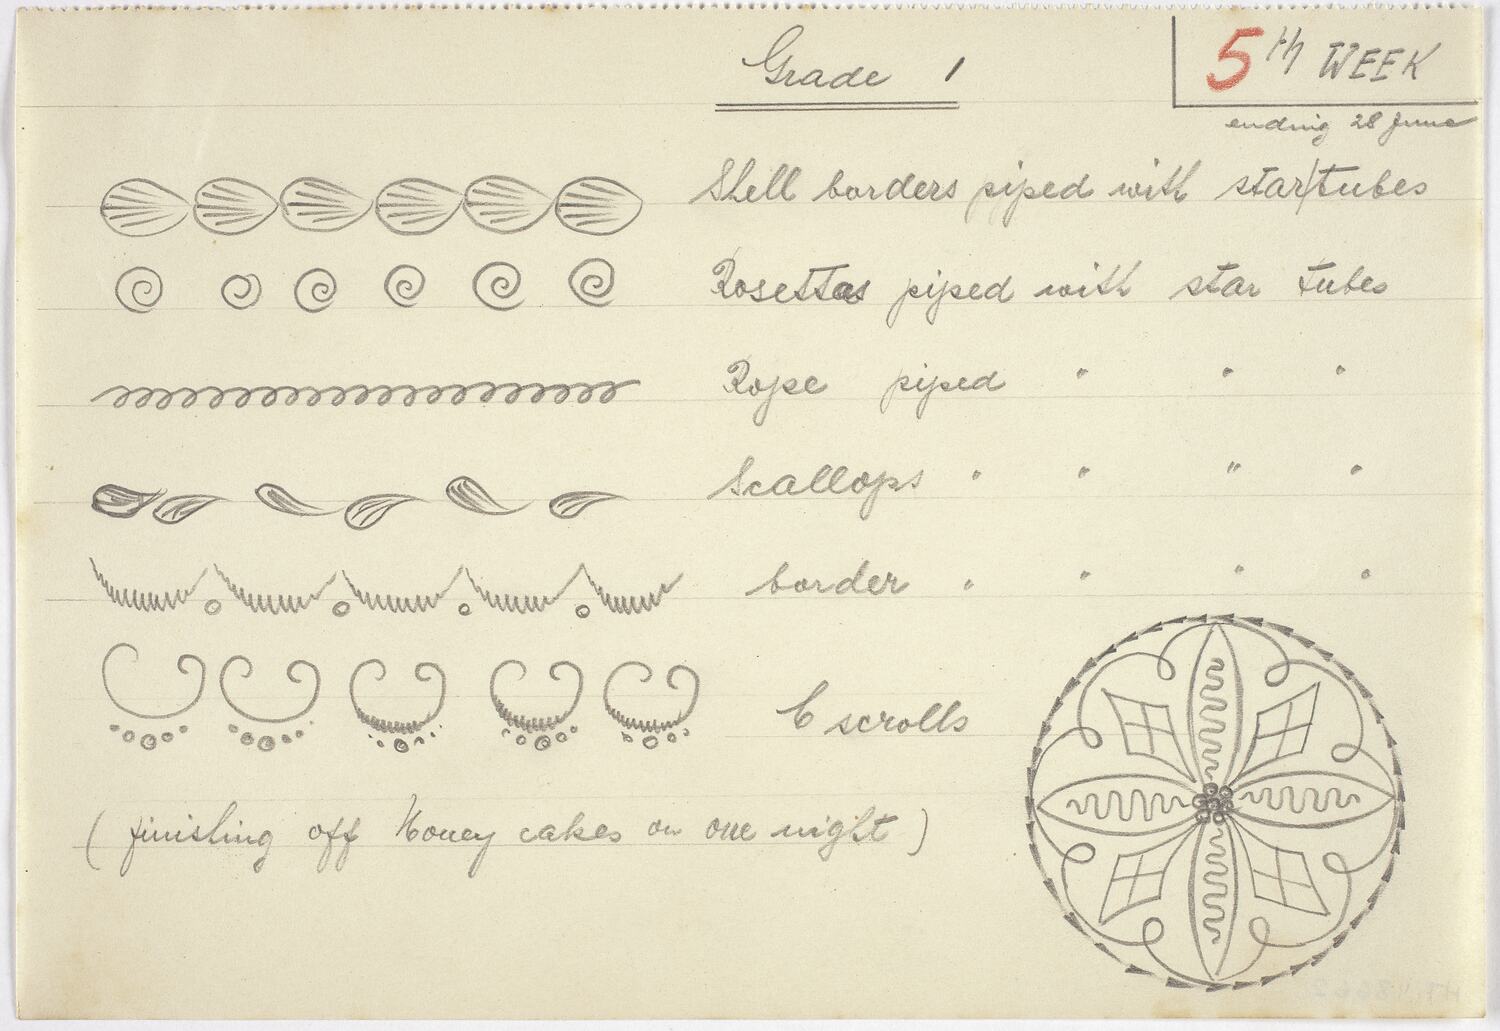 Grade 1
5TH WEEK
ending 28 June
Shell borders piped with star/tubes
Rosettas piped with star tubes
Rope piped " " "
Scallops " " " "
border " " " "
C scrolls
(finishing off Honey cakes on one night)